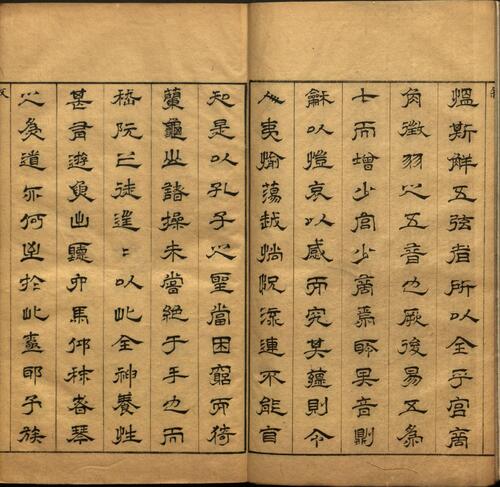 慍斯解五弦者所以全乎宮商
角徵羽之五音也厥後易五為
七而增少宮少商焉聆其音則
龢以愷哀以感而究其蘊則令
人夷愉蕩越惝怳流連不能自
知是以孔子之聖當困窮而猗
蘭龜山諸操未嘗絕于手也而
嵇阮之徒往〻以此全神養性
甚有遊魚出聽六馬仰秣者琴
之為道亦何於此耶予族